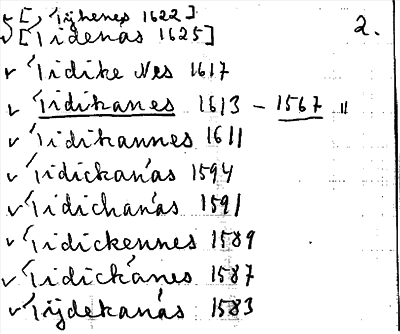 ✓ [ Tijhenes 1622 ]
2.
✓ [ Tidenäs 1625 ]
✓ Tidike Nes 1617
✓ Tidikanes 1613 – 1567 "
✓ Tidikannes 1611
✓ Tidickanäs 1594
✓ Tidichanäs 1591
✓ Tidickennes 1589
✓ Tidickånes 1587
✓ Tijdekanäs 1583